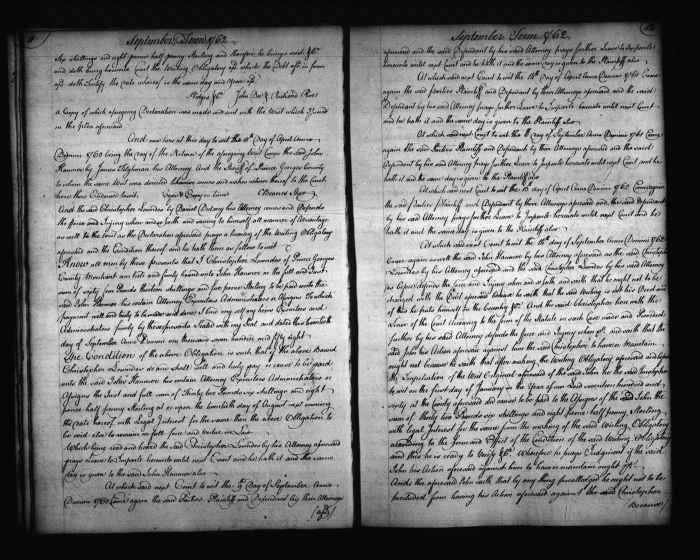 September Term 1762
Six shillings and eight pence half penny Sterling and therefore he brings suit &c
and doth bring here into Court the Writing Obligatory afd. which the Debt afd. in form
afd. doth testify the date whereof is the same day and Year afd.
Pledges &c. John Doe & Richard Roe
a Copy of which aforegoing Declaration was made and sent with the Writ which issued
in the plea aforesaid
And now here at this day to wit the day of April Anno
Domini 1760 being the day of the Return of the aforegoing Writ Comes the said John
Hanover by James Tilghman his Attorney And the Sheriff of Prince Georges County
to whom the same Writ was directed likewise comes and makes return thereof to the Court
here thus Endorsed to wit.
And the said Christopher Lowndes by Daniel Dulany his Attorney comes and Defends
the force and Injury when and so forth and saving to himself all manner of Advantage
as well to the Writ as the Declaration aforesaid prays a hearing of the Writing Obligatory
aforesaid and the Condition thereof and he hath them as follows to wit
Know all men by these presents that I Christopher Lowndes of Prince Georges
County Merchant am held and firmly bound unto John Hanover in the full and Just
sum of sixty four Pounds thirteen shillings and five pence Sterling to be paid unto the
said John Hanover his certain Attorney Executors Administrators or Assigns To which
payment well and truly to be made and done I bind my self my heirs Executors and
Administrators firmly by these presents Sealed with my Seal and dated this twentieth
day of September Anno Domini one thousand seven hundred and fifty eight
The Condition of the above Obligation is such that if the above Bound
Christopher Lowndes do and shall well and truly pay or cause to be paid
unto the said John Hanover his certain Attorney Executors Administrators or
Assigns the Just and full sum of thirty two Pounds six shillings and eight
pence half penny Sterling at or upon the twentieth day of August next ensuing
the date hereof with Legal Interest for the same then the above Obligation to
be void else to remain in full force and virtue in Law
Which being read and heard the said Christopher Lowndes by his Attorney aforesaid
prays Leave to Imparle hereunto until next Court and he hath it and the same
day is given to the said John Hanover also
At which said next Court to wit the 9th day of September Anno
Domini 1760 Come again the said Parties Plaintiff and Defendant by their Attorneys
September Term 1762
aforesaid and the said Defendant by his said Attorney prays further Leave to Imparle
hereunto until next Court and he hath it and the same day is given to the Plaintiff also
At which said next Court to wit the 14th day of April Anno Domini 1761 Come
again the said parties Plaintiff and Defendant by their Attorneys aforesaid and the said
Defendant by his said Attorney prays further Leave to Imparle hereunto until next Court
and he hath it and the same day is given to the Plaintiff also
At which said next Court to wit the day of September Anno Domini 1761 Come
again the said Parties Plaintiff and Defendant by their Attorneys aforesaid and the said
Defendant by his said Attorney prays further Leave to Imparle hereunto until next Court and he
hath it and the same day is given to the Plaintiff also
At which said next Court to wit the day of April Anno Domini 1762 Comes again
the said Parties Plaintiff and Defendant by their Attorneys aforesaid and the said Defendant
by his said Attorney prays further Leave to Imparle hereunto until next Court and he
hath it and the same day is given to the Plaintiff also
At which said next Court to wit the 14th day of September Anno Domini 1762
Come again as well the said John Hanover by his Attorney aforesaid as the said Christopher
Lowndes by his Attorney aforesaid and the said Christopher Lowndes by his said Attorney
as before defends the force and Injury when and so forth and saith that he ought not to be
charged with the Debt aforesaid because he saith that the said Writing is not his Deed and
of this he puts himself on the Country &c. And the said Christopher here with the
Leave of the Court According to the form of the Statute in such Case made and Provided
further by his said Attorney defends the force and Injury when &c. and saith that the
said John his Action aforesaid against him the said Christopher to have or Maintain
ought not because he saith that after making the Writing Obligatory aforesaid and before
the Impetration of the Writ Original aforesaid of the said John he the said Christopher
to wit on the first day of January in the Year of our Lord seventeen hundred and
sixty at the County aforesaid did cause to be paid to the Assigns of the said John the
sum of thirty two Pounds six shillings and eight pence half penny Sterling
with legal Interest for the same from the making of the said Writing Obligatory
according to the form and Effect of the Condition of the said Writing Obligatory
and this he is ready to Verify &c. Wherefore he prays Judgment if the said
John his Action aforesaid against him to have or maintain ought &c.
And the aforesaid John saith that by any thing prealledged he ought not to be
precluded from having his Action aforesaid against the said Christopher
Because